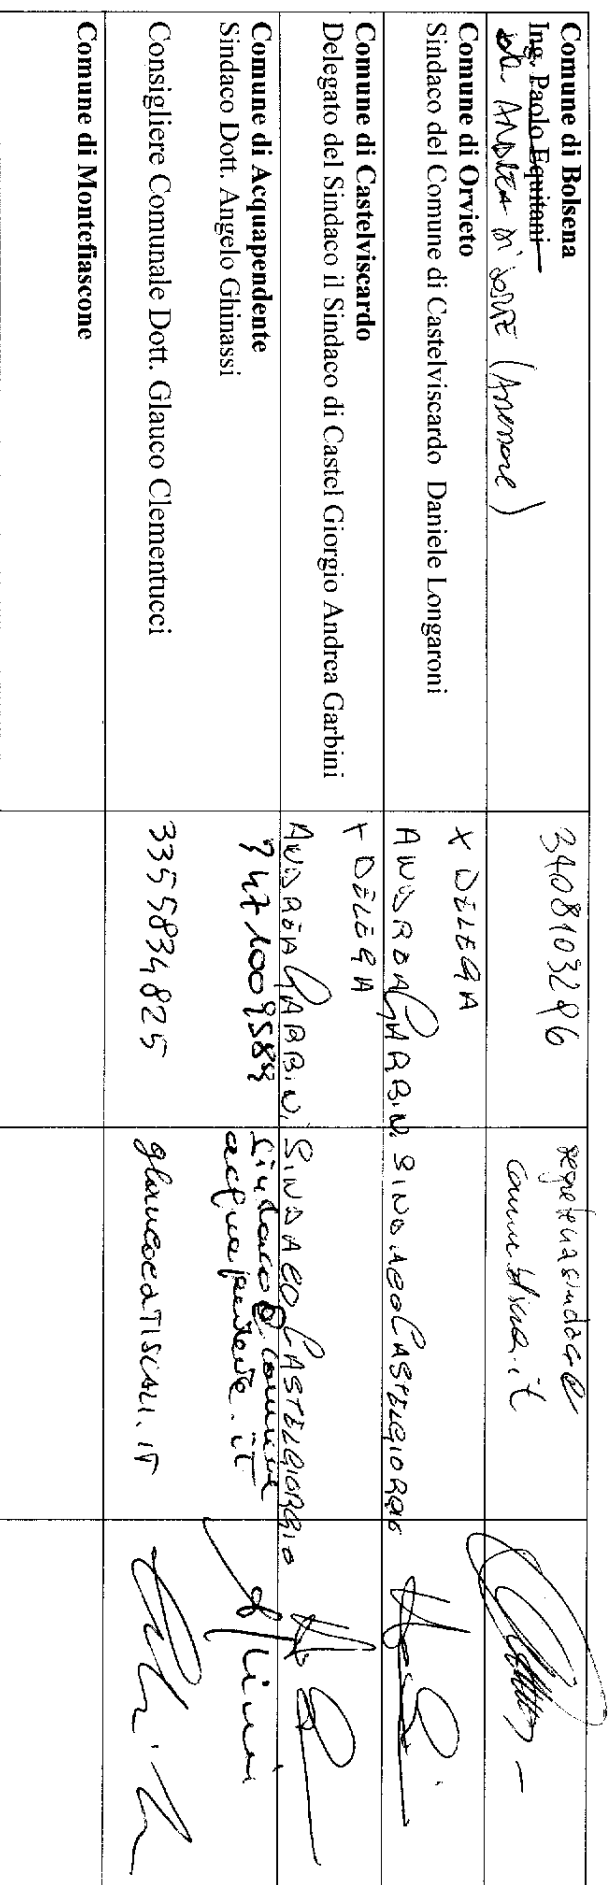 Comune di Bolsena
Ing. Paolo Equitani
ANDREA DI SORTE (Assessore)
3408103296
segreteriasindaco@
comunebolsena.it
Comune di Orvieto
Sindaco del Comune di Castelviscardo Daniele Longaroni
X DELEGA
ANDREA GARBINI SINDACO CASTELGIORGIO
Comune di Castelviscardo
Delegato del Sindaco il Sindaco di Castel Giorgio Andrea Garbini
X DELEGA
ANDREA GARBINI SINDACO CASTELGIORGIO
Comune di Acquapendente
Sindaco Dott. Angelo Ghinassi
sindaco@comune
acquapendente.it
Consigliere Comunale Dott. Glauco Clementucci
3355834825
Comune di Montefiascone